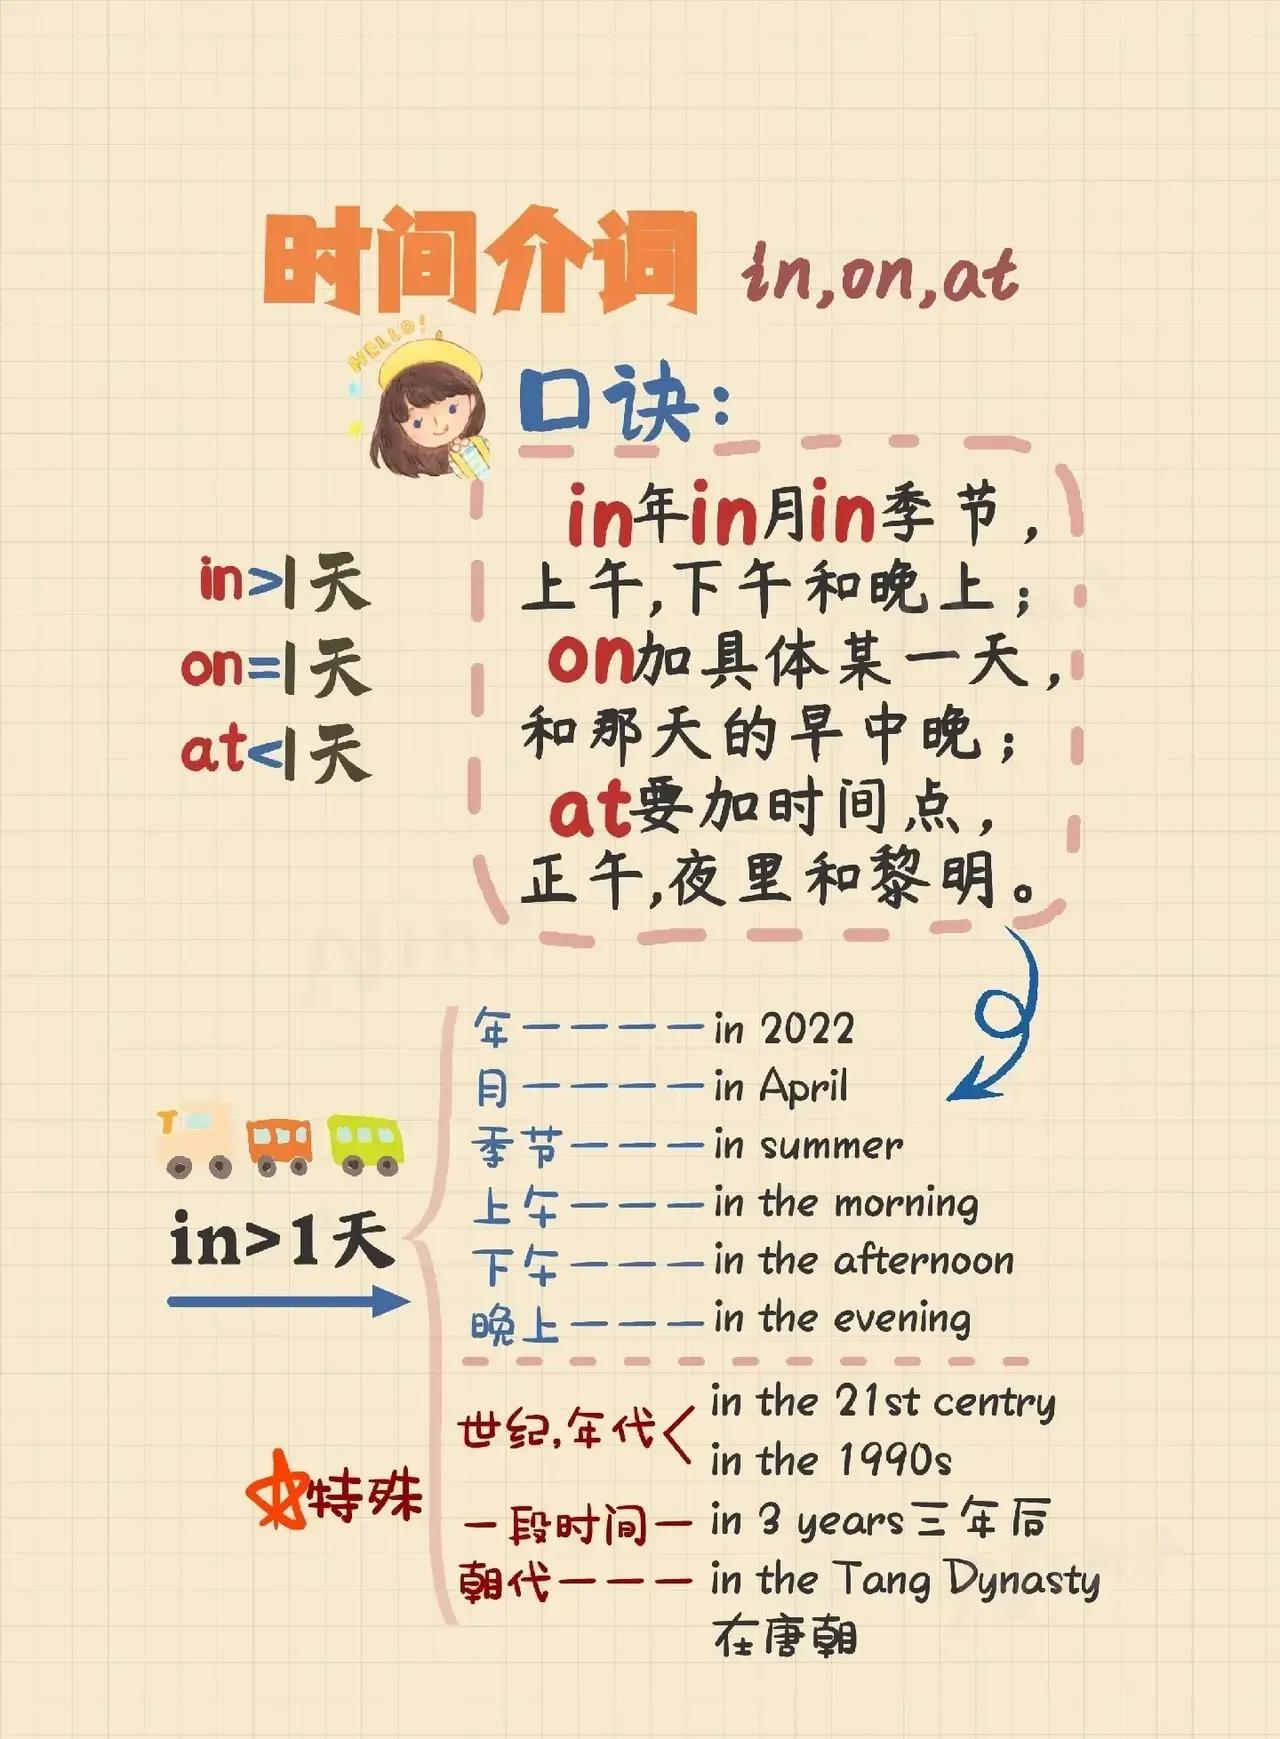 时间介词 in,on,at
HELLO!
口诀：
in年in月in季节，
上午，下午和晚上；
on加具体某一天，
和那天的早中晚；
at要加时间点，
正午，夜里和黎明。
in>1天
on=1天
at<1天
in>1天
年————in 2022
月————in April
季节———in summer
上午———in the morning
下午———in the afternoon
晚上———in the evening
特殊
世纪，年代<in the 21st centry
in the 1990s
一段时间—in 3 years三年后
朝代———in the Tang Dynasty
在唐朝